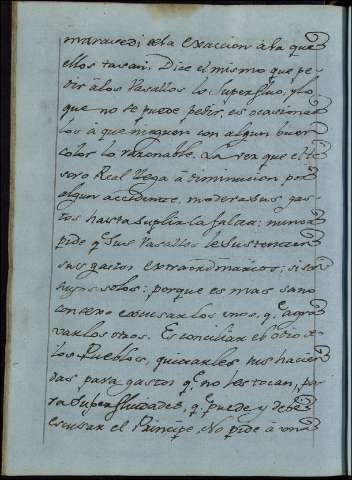 maravedi de la exaccion à la que
ellos tasan. Dice el mismo que pe-
dir à los Vasallos lo superfluo, y lo
que no se puede pedir, es ocasionar
los à que nieguen con algun buen
color lo razonable. La vez que el te
soro Real llega à diminucion por
algun accidente, modera sus gas-
tos hasta suplir la falta: nunca
pide q.e sus Vasallos le sustenten
sus gastos extraordinarios; si los
suyos solos: porque es mas sano
consejo escusar los unos, q.e agra
var los otros. Es conciliar el odio de
los Pueblos, quitarles sus hacien
das para gastos q.e no les tocan, pa
ra superfluidades, q.e puede y debe
escusar el Principe. No pide à una